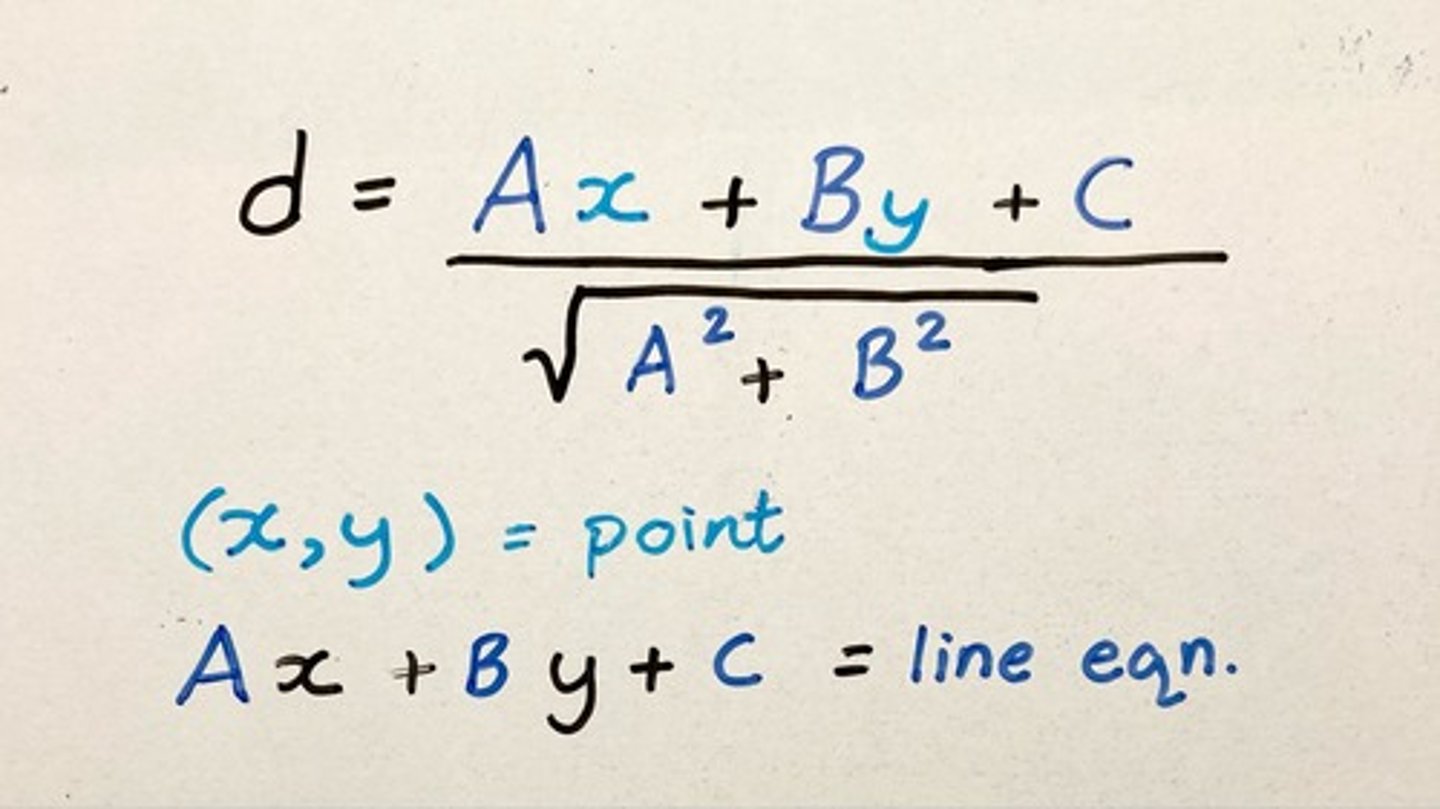 d = Ax + By + C
√A² + B²
(x,y) = point
Ax + By + C = line eqn.